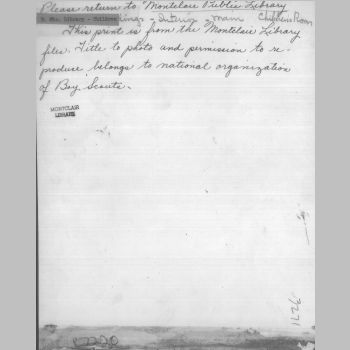 Please return to Montclair Public Library
Library - Children
- Interior - main Children's Room
This print is from the Montclair Library
files. Title to photo and permission to re-
produce belongs to national organization
of Boy Scouts.
MONTCLAIR
LIBRARY